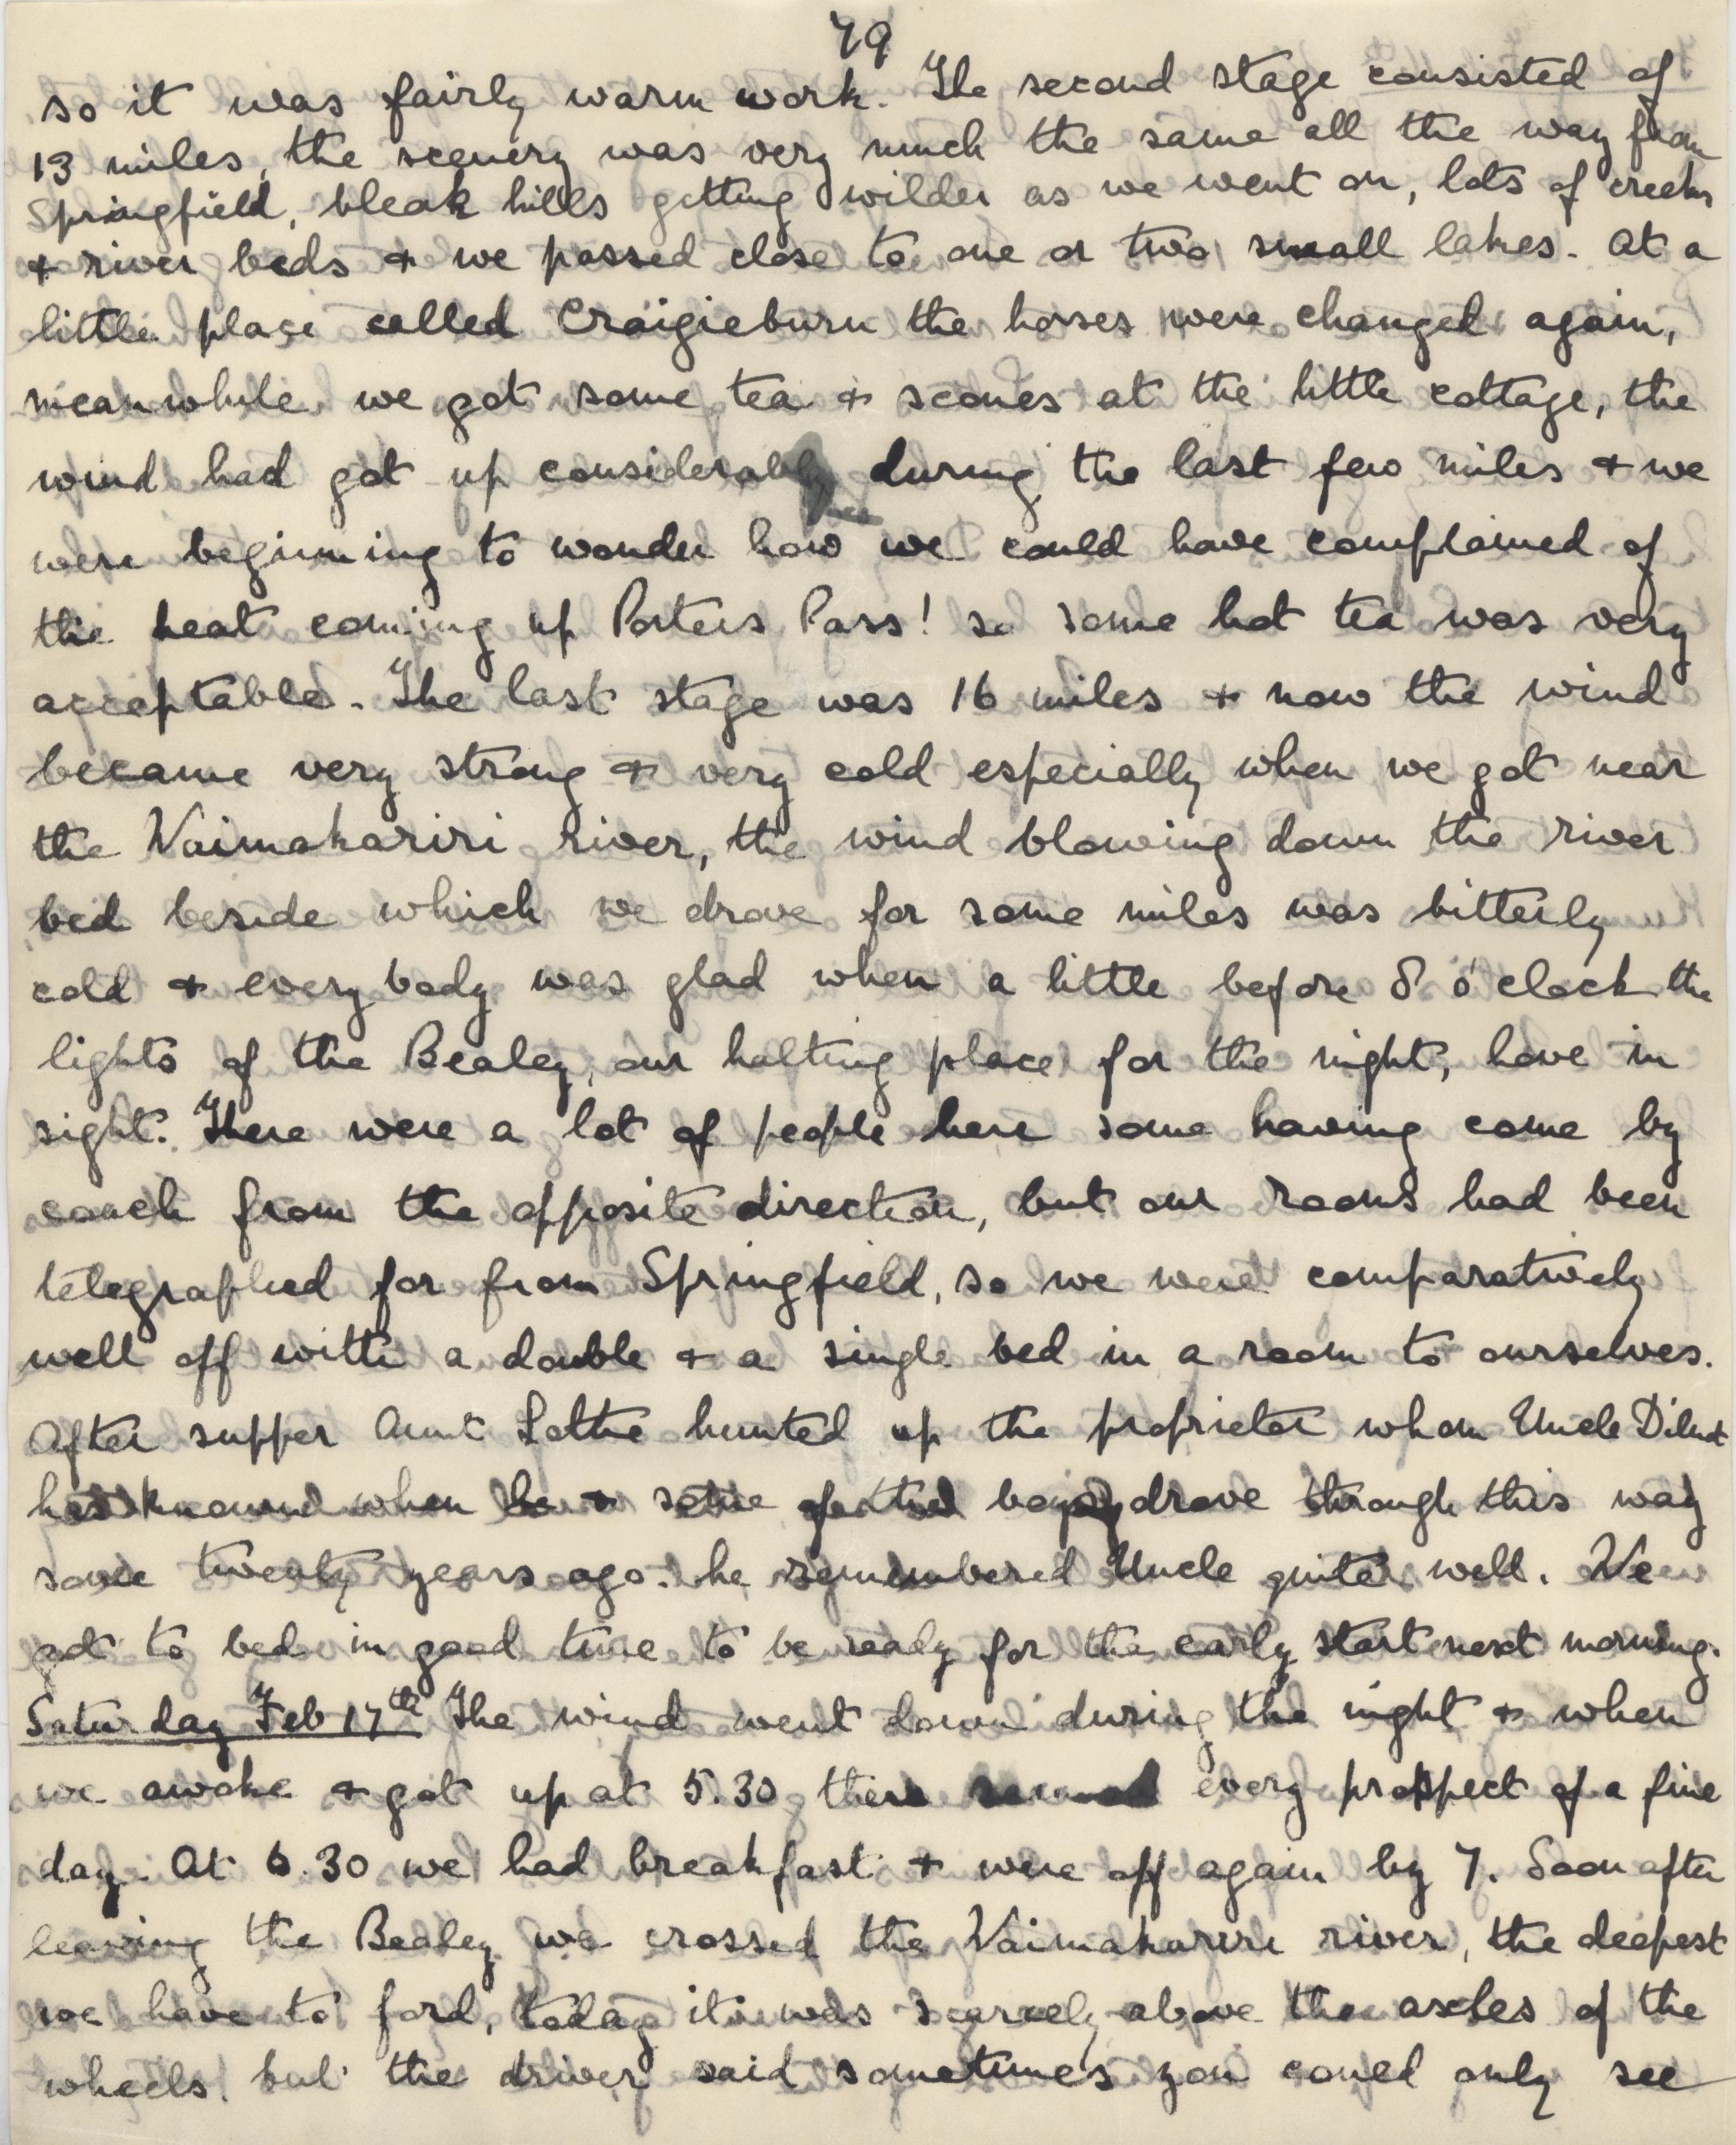 79
so it was fairly warm work. The second stage consisted of
13 miles, the scenery was very much the same all the way from
Springfield, bleak hills getting wilder as we went on, lots of creeks
& river beds & we passed close to one or two small lakes. At a
little place called Craigieburn the horses were changed again,
meanwhile we got some tea & scones at the little cottage, the
wind had got up considerably during the last few miles & we
were beginning to wonder how we could have complained of
the heat coming up Porters Pass! so some hot tea was very
acceptable. The last stage was 16 miles & now the wind
became very strong & very cold especially when we got near
the Waimakariri river, the wind blowing down the river
bed beside which we drove for some miles was bitterly
cold & every body was glad when a little before 8 o'clock the
lights of the Bealey, our halting place for the night, hove in
sight. There were a lot of people here some having come by
coach from the opposite direction, but our rooms had been
telegraphed for from Springfield, so we were comparatively
well off with a double & a single bed in a room to ourselves.
After supper Aunt Lottie hunted up the proprietor whom Uncle
has known when he & some of the boys drove through this way
some twenty years ago. he remembered Uncle quite well. We
got to bed in good time to be ready for the early start next morning.
Saturday Feb 17th The wind went down during the night & when
we awoke & got up at 5.30 there seemed every prospect of a fine
day. At 6.30 we had breakfast & were off again by 7. Soon after
leaving the Bealey we crossed the Waimakariri river, the deepest
we have to ford, today it was scarcely above the axles of the
wheels. but the driver said sometimes you could only see